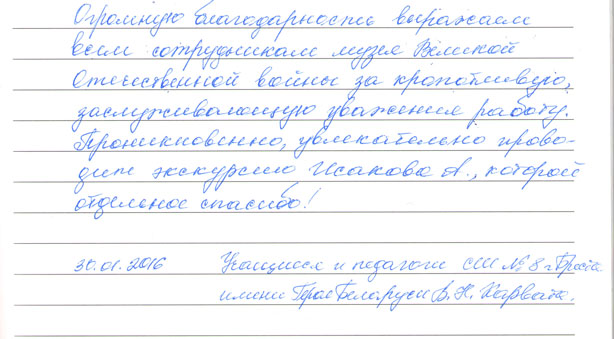 Огромную благодарность выражаем
всем сотрудникам музея Великой
Отечественной войны за кропотливую,
заслуживающую уважения работу.
Проникновенно, увлекательно прово-
дит экскурсию Исакова А., которой
отдельное спасибо!
30.01.2016 Учащиеся и педагоги СШ № 8 г. Бреста
имени Героя Беларуси В. Н. Карвата.